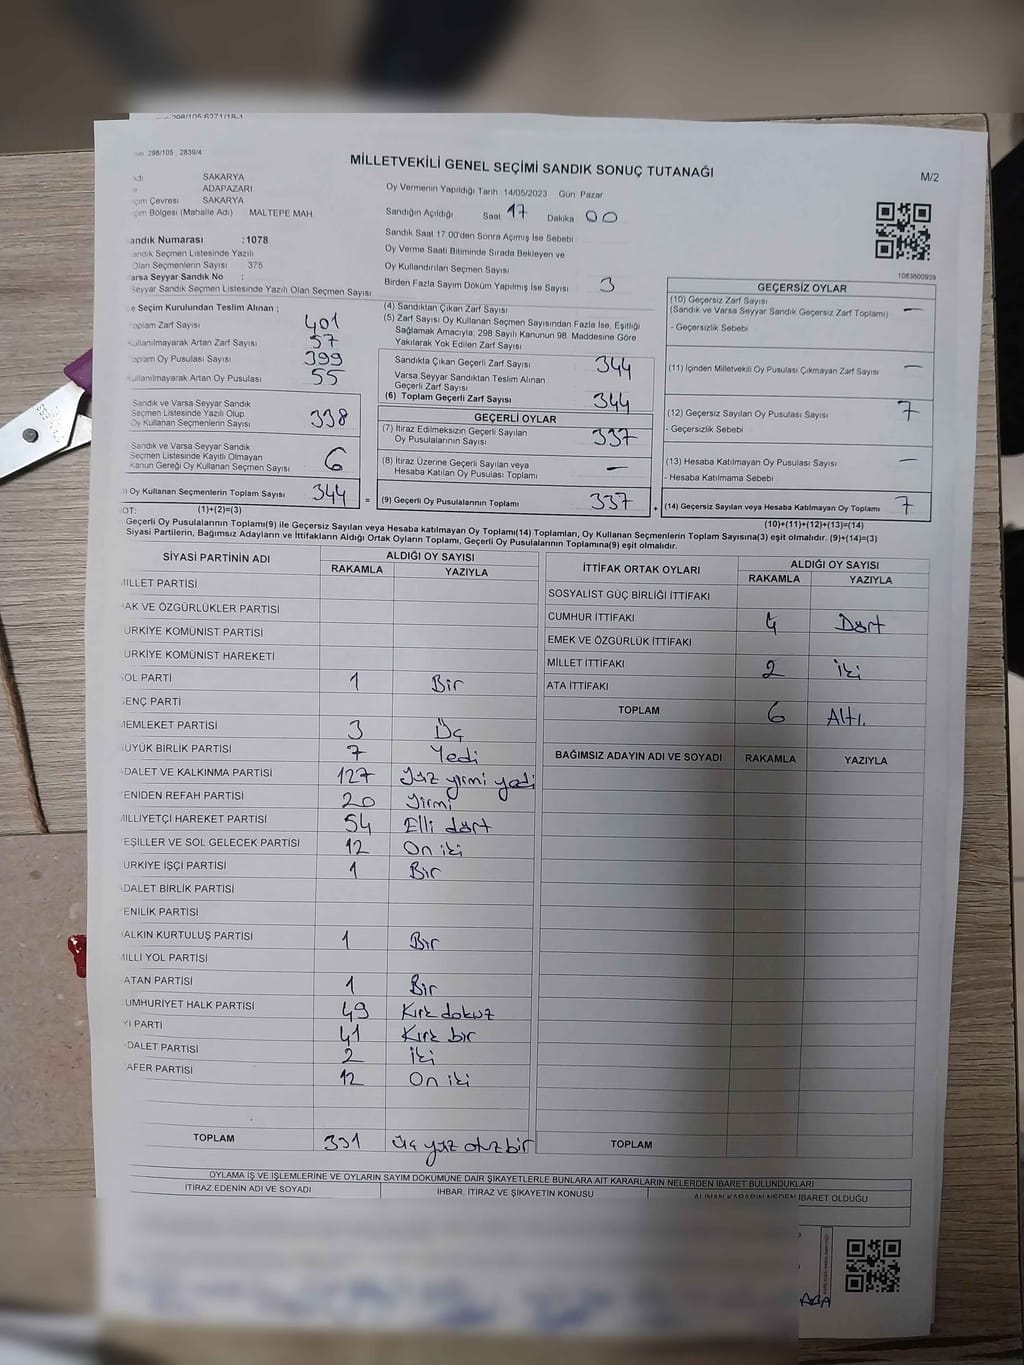 298/105 , 2839/4
MİLLETVEKİLİ GENEL SEÇİMİ SANDIK SONUÇ TUTANAĞI
M/2
SAKARYA
ADAPAZARI
Çevresi SAKARYA
Bölgesi (Mahalle Adı) MALTEPE MAH.
Oy Vermenin Yapıldığı Tarih 14/05/2023 Gün Pazar
Sandığın Açıldığı Saat 17 Dakika 00
Sandık Saat 17 00'den Sonra Açımış İse Sebebi
Oy Verme Saati Bitiminde Sırada Bekleyen ve
Oy Kullandırılan Seçmen Sayısı
Birden Fazla Sayım Döküm Yapılmış İse Sayısı 3
andık Numarası :1078
andık Seçmen Listesinde Yazılı
Olan Seçmenlerin Sayısı 375
Varsa Seyyar Sandık No :
Seyyar Sandık Seçmen Listesinde Yazılı Olan Seçmen Sayısı
1083600939
e Seçim Kurulundan Teslim Alınan ;
Toplam Zarf Sayısı 401
Kullanılmayarak Artan Zarf Sayısı 57
Toplam Oy Pusulası Sayısı 399
Kullanılmayarak Artan Oy Pusulası 55
Sandık ve Varsa Seyyar Sandık
Seçmen Listesinde Yazılı Olup
Oy Kullanan Seçmenlerin Sayısı 338
Sandık ve Varsa Seyyar Sandık
Seçmen Listesinde Kayıtlı Olmayan
Kanun Gereği Oy Kullanan Seçmen Sayısı 6
Oy Kullanan Seçmenlerin Toplam Sayısı 344 =
(1)+(2)=(3)
(4) Sandıktan Çıkan Zarf Sayısı
(5) Zarf Sayısı Oy Kullanan Seçmen Sayısından Fazla İse, Eşitliği
Sağlamak Amacıyla, 298 Sayılı Kanunun 98. Maddesine Göre
Yakılarak Yok Edilen Zarf Sayısı
Sandıkta Çıkan Geçerli Zarf Sayısı 344
Varsa Seyyar Sandıktan Teslim Alınan
Geçerli Zarf Sayısı
(6) Toplam Geçerli Zarf Sayısı 344
GEÇERLİ OYLAR
(7) İtiraz Edilmeksizin Geçerli Sayılan
Oy Pusulalarının Sayısı 337
(8) İtiraz Üzerine Geçerli Sayılan veya
Hesaba Katılan Oy Pusulası Toplamı —
(9) Geçerli Oy Pusulalarının Toplamı 337 +
GEÇERSİZ OYLAR
(10) Geçersiz Zarf Sayısı
(Sandık ve Varsa Seyyar Sandık Geçersiz Zarf Toplamı) —
- Geçersizlik Sebebi
(11) İçinden Milletvekili Oy Pusulası Çıkmayan Zarf Sayısı —
(12) Geçersiz Sayılan Oy Pusulası Sayısı 7
- Geçersizlik Sebebi
(13) Hesaba Katılmayan Oy Pusulası Sayısı —
- Hesaba Katılmama Sebebi
(14) Geçersiz Sayılan veya Hesaba Katılmayan Oy Toplamı 7
(10)+(11)+(12)+(13)=(14)
OT:
Geçerli Oy Pusulalarının Toplamı(9) ile Geçersiz Sayılan veya Hesaba katılmayan Oy Toplamı(14) Toplamları, Oy Kullanan Seçmenlerin Toplam Sayısına(3) eşit olmalıdır. (9)+(14)=(3)
Siyasi Partilerin, Bağımsız Adayların ve İttifakların Aldığı Ortak Oyların Toplamı, Geçerli Oy Pusulalarının Toplamına(9) eşit olmalıdır.
SİYASİ PARTİNİN ADI ALDIĞI OY SAYISI
RAKAMLA YAZIYLA
MİLLET PARTİSİ
AK VE ÖZGÜRLÜKLER PARTİSİ
ÜRKİYE KOMÜNİST PARTİSİ
ÜRKİYE KOMÜNİST HAREKETİ
SOL PARTİ 1 Bir
GENÇ PARTİ
MEMLEKET PARTİSİ 3 Üç
BÜYÜK BİRLİK PARTİSİ 7 Yedi
ADALET VE KALKINMA PARTİSİ 127 Yüz yirmi yedi
YENİDEN REFAH PARTİSİ 20 Yirmi
MİLLİYETÇİ HAREKET PARTİSİ 54 Elli dört
YEŞİLLER VE SOL GELECEK PARTİSİ 12 On iki
ÜRKİYE İŞÇİ PARTİSİ 1 Bir
ADALET BİRLİK PARTİSİ
YENİLİK PARTİSİ
HALKIN KURTULUŞ PARTİSİ 1 Bir
MİLLİ YOL PARTİSİ
VATAN PARTİSİ 1 Bir
CUMHURİYET HALK PARTİSİ 49 Kırk dokuz
İYİ PARTİ 41 Kırk bir
ADALET PARTİSİ 2 İki
ZAFER PARTİSİ 12 On iki
TOPLAM 331 üç yüz otuz bir
İTTİFAK ORTAK OYLARI ALDIĞI OY SAYISI
RAKAMLA YAZIYLA
SOSYALİST GÜÇ BİRLİĞİ İTTİFAKI
CUMHUR İTTİFAKI 4 Dört
EMEK VE ÖZGÜRLÜK İTTİFAKI
MİLLET İTTİFAKI 2 İki
ATA İTTİFAKI
TOPLAM 6 Altı.
BAĞIMSIZ ADAYIN ADI VE SOYADI RAKAMLA YAZIYLA
TOPLAM
OYLAMA İŞ VE İŞLEMLERİNE VE OYLARIN SAYIM DÖKÜMÜNE DAİR ŞİKAYETLERLE BUNLARA AİT KARARLARIN NELERDEN İBARET BULUNDUKLARI
İTİRAZ EDENİN ADI VE SOYADI İHBAR, İTİRAZ VE ŞİKAYETİN KONUSU ALINAN KARARIN NEDEN İBARET OLDUĞU